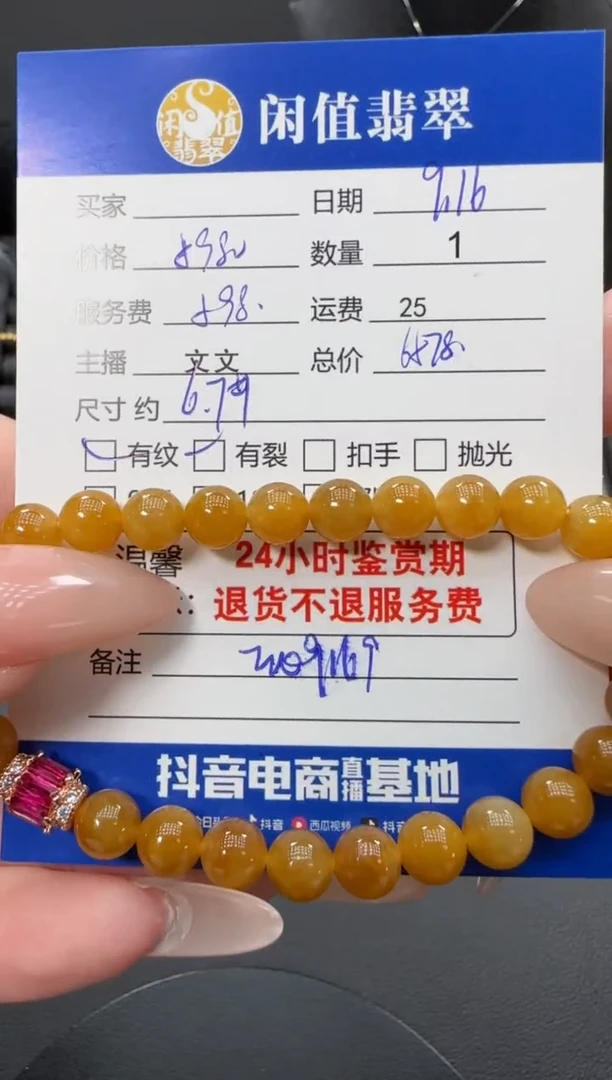 闲值翡翠
闲值
翡翠
买家 日期 9.16
价格 5980 数量 1
服务费 598. 运费 25
主播 文文 总价 6578.
尺寸 约 6.7
有纹 有裂 扣手 抛光
温馨 24小时鉴赏期
退货不退服务费
备注
抖音电商直播基地
抖音 西瓜视频